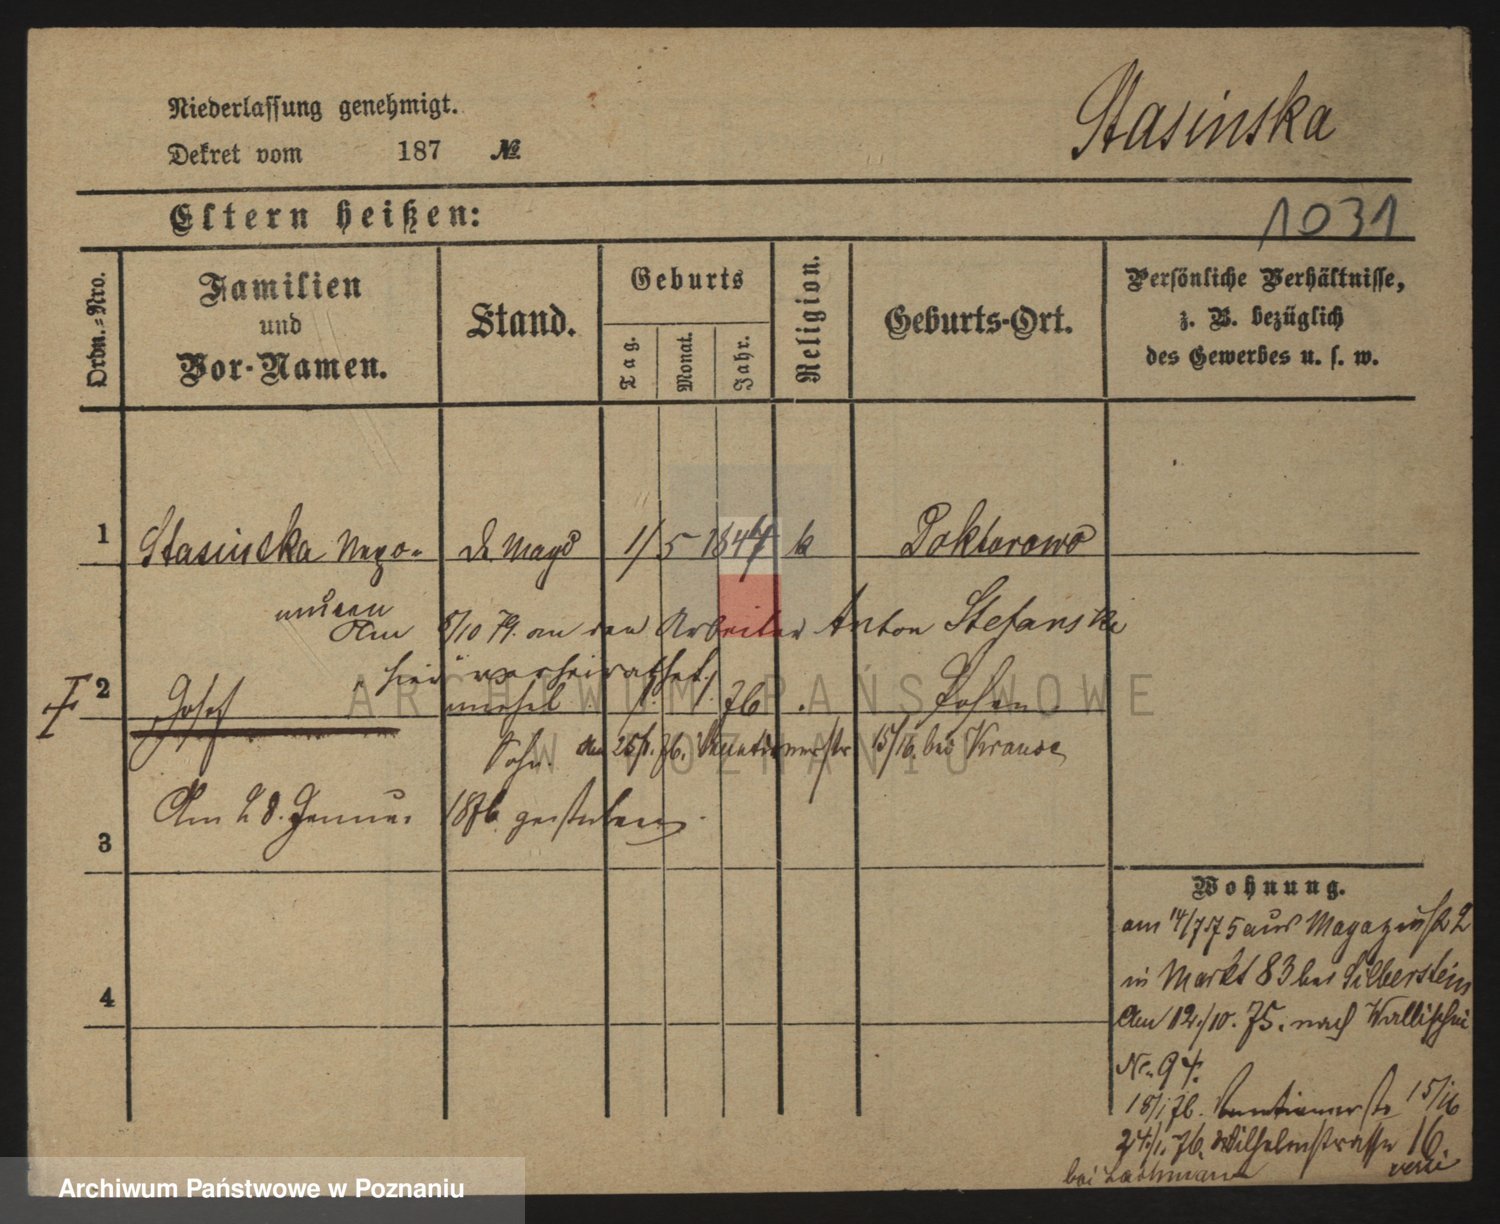 Niederlassung genehmigt.
Dekret vom 187 №
Stasinska
Eltern heißen:
1031
Ordn.-Nro.
Familien und Vor-Namen.
Stand.
Geburts
Tag.
Monat.
Jahr.
Religion.
Geburts-Ort.
Persönliche Verhältnisse, z. B. bezüglich des Gewerbes u. s. w.
1 Stasinska Nepo- d Magd 1/ 5 1844 k Doktorowo
mucen
Am 8/10 79. an den Arbeiter Anton Stefanski
hier verheirathet.
2 Josef unehel 1. 1. 76 Posen
Sohn. am 25/1. 76. 15/16. bei Krause
Am 28. Januar 1876. gestorben
3
4
Wohnung.
am 14/7 75 aus Magazinst 2
in Markt 83 bei Silberstein
Am 12/10. 75. nach Wallischei
No. 94.
18/1 76. 15/16
24/1. 76. Wilhelmstrasse 16.
bei Lachmann
ARCHIWUM PAŃSTWOWE
W POZNANIU
Archiwum Państwowe w Poznaniu